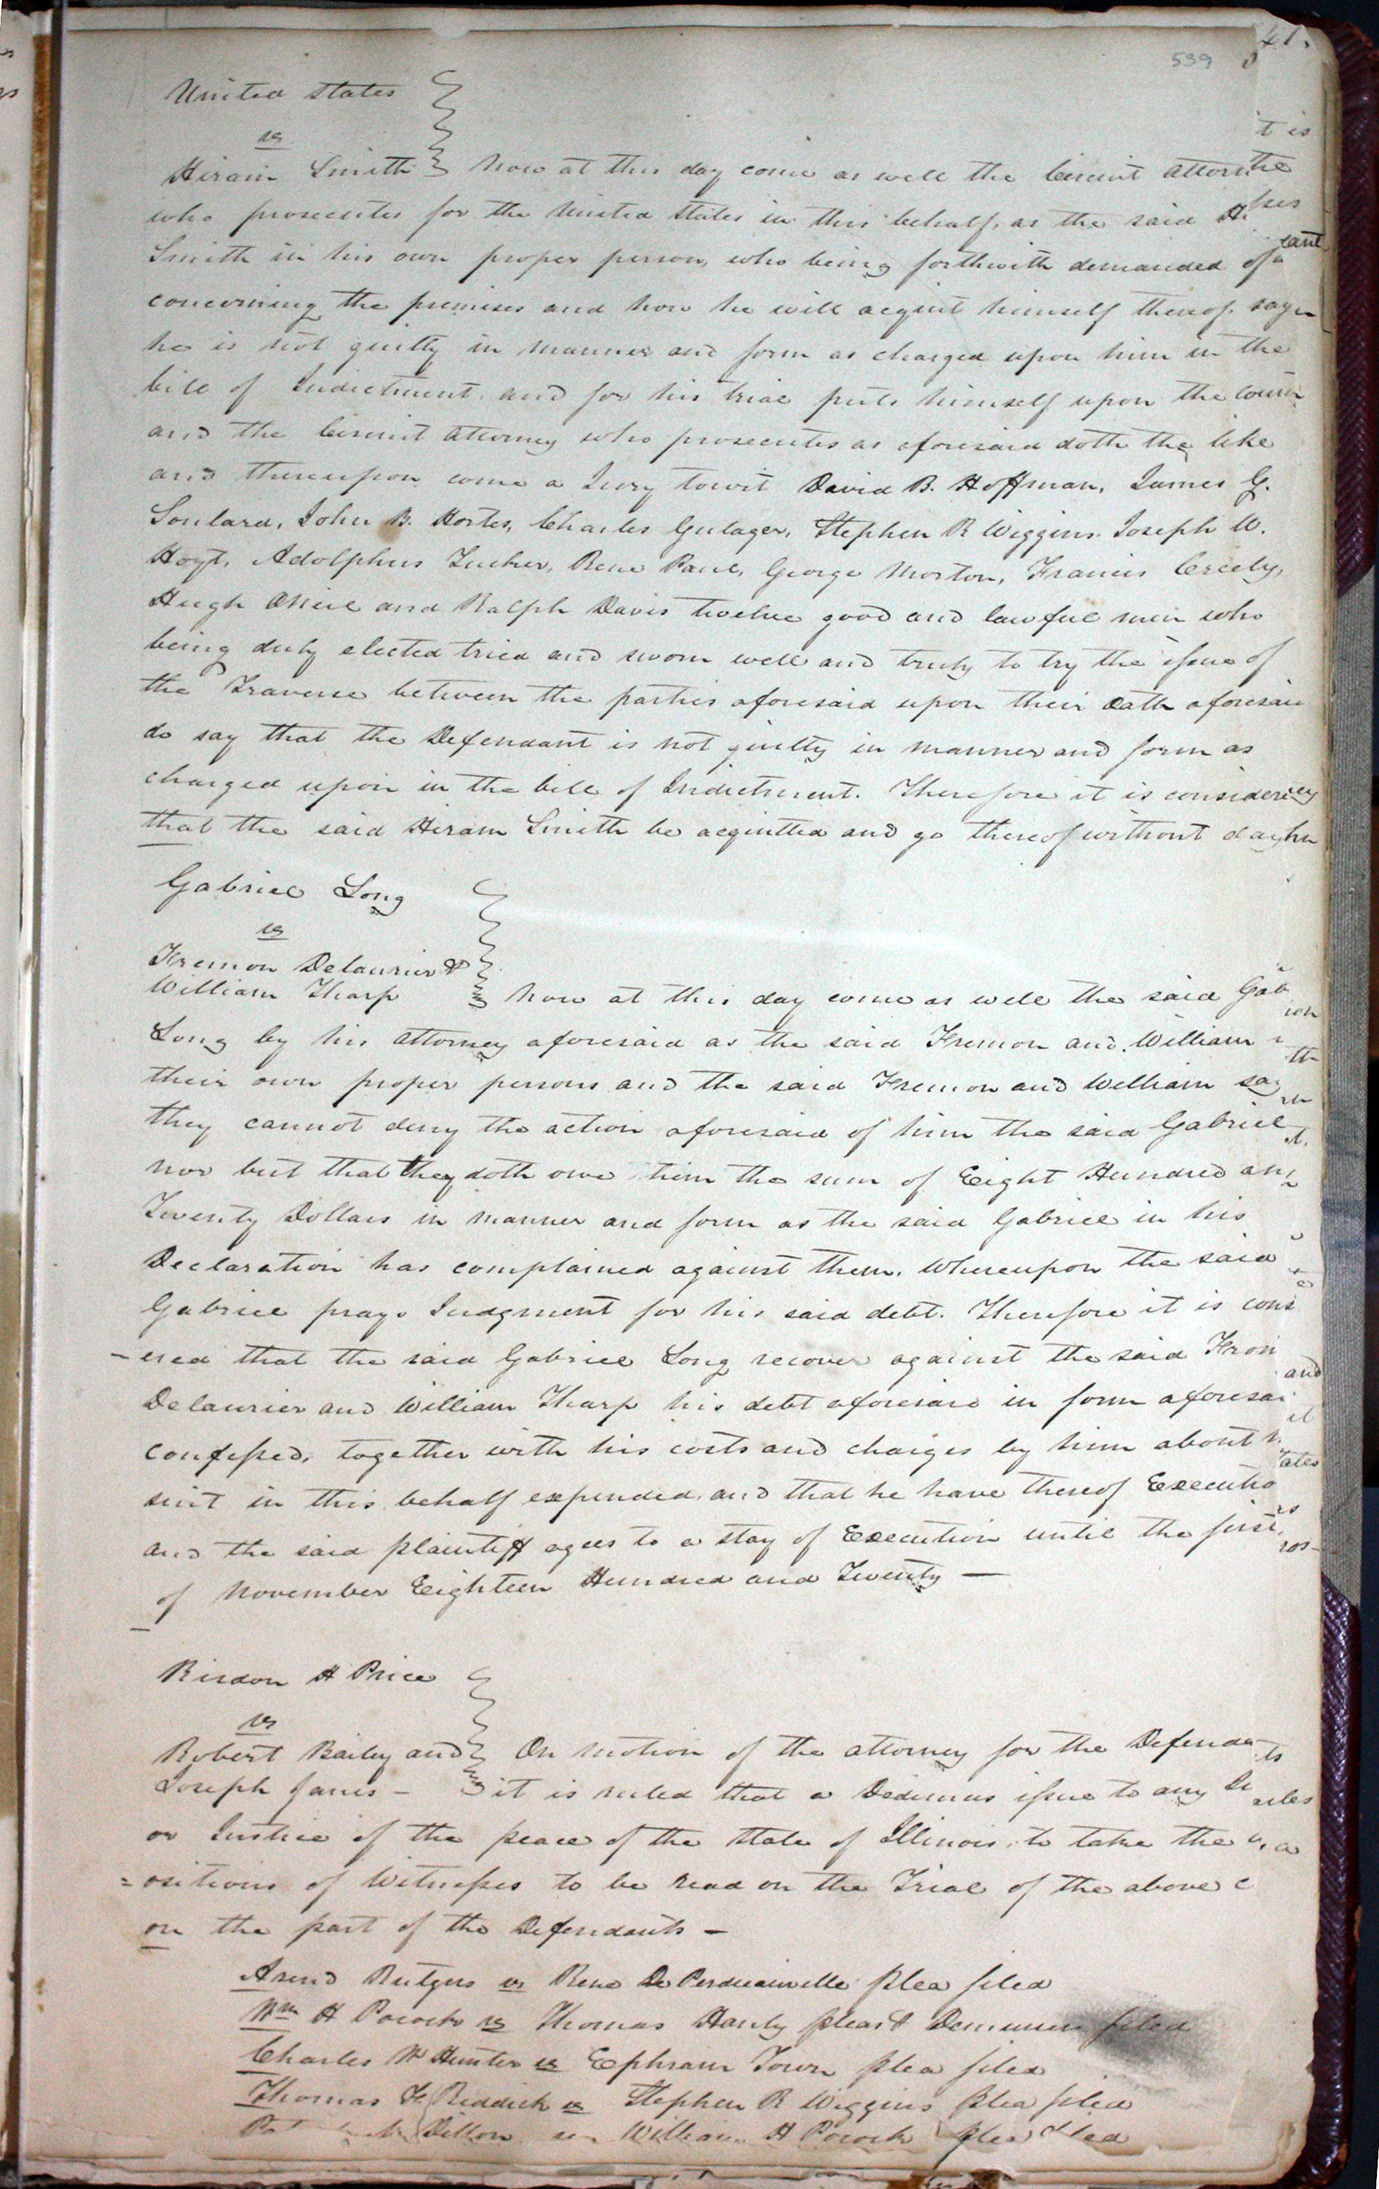 41.
539
United States
vs
Hiram Smith now at this day come as well the Circuit attor
who prosecutes for the United States in this behalf, as the said Hi
Smith in his own proper person, who being forthwith demanded of
concerning the premises and how he will acquit himself thereof, says
he is not guilty in manner and form as charged upon him in the
bill of Indictment, and for his trial puts himself upon the Coun
and the Circuit attorney who prosecutes as aforesaid doth the like
and thereupon come a Jury towit David B. Hoffman, James G.
Soulard, John B. Hortes, Charles Gulager, Stephen R Wiggins, Joseph W.
Hoyt, Adolphus Tucker, Rene Paul, George Morton, Francis Creely,
Hugh ONeil and Ralph Davis twelve good and lawful men who
being duly elected tried and sworn well and truly to try the issue of
the Traverse between the parties aforesaid upon their Oath aforesaid
do say that the Defendant is not guilty in manner and form as
charged upon in the bill of Indictment. Therefore it is considered
that the said Hiram Smith be acquitted and go thereof without day
Gabriel Long
vs
Fremon Delaurier &
William Tharp now at this day come as well the said Gab
Long by his attorney aforesaid as the said Fremon and William
their own proper persons and the said Fremon and William say
they cannot deny the action aforesaid of him the said Gabriel
nor but that they doth owe him the sum of Eight Hundred an
Twenty Dollars in manner and form as the said Gabriel in his
Declaration has complained against them. Whereupon the said
Gabriel prays Judgment for his said debt. Therefore it is cons
-ered that the said Gabriel Long recover against the said Fron
Delaurier and William Tharp his debt aforesaid in form aforesai
confessed, together with his costs and charges by him about h
suit in this behalf expended, and that he have thereof Executio
and the said plaintiff agees to a stay of Execution until the first
of November Eighteen Hundred and Twenty —
Risdon H Price
vs
Robert Bailey and On motion of the attorney for the Defenda
Joseph Janis - it is ruled that a Dedimus issue to any
or Justice of the peace of the State of Illinois, to take the
=ositions of Witnesses to be read on the Trial of the above c
on the part of the Defendants —
Arend Rutgers vs Rene De Perdreauville plea filed
Wm H Pocock vs Thomas Hanly pleas & Demurrer filed
Charles W Hunter vs Ephraim Town plea filed
Thomas F Riddick vs Stephen R Wiggins plea filed
Dillon vs William H Pocock plea filed